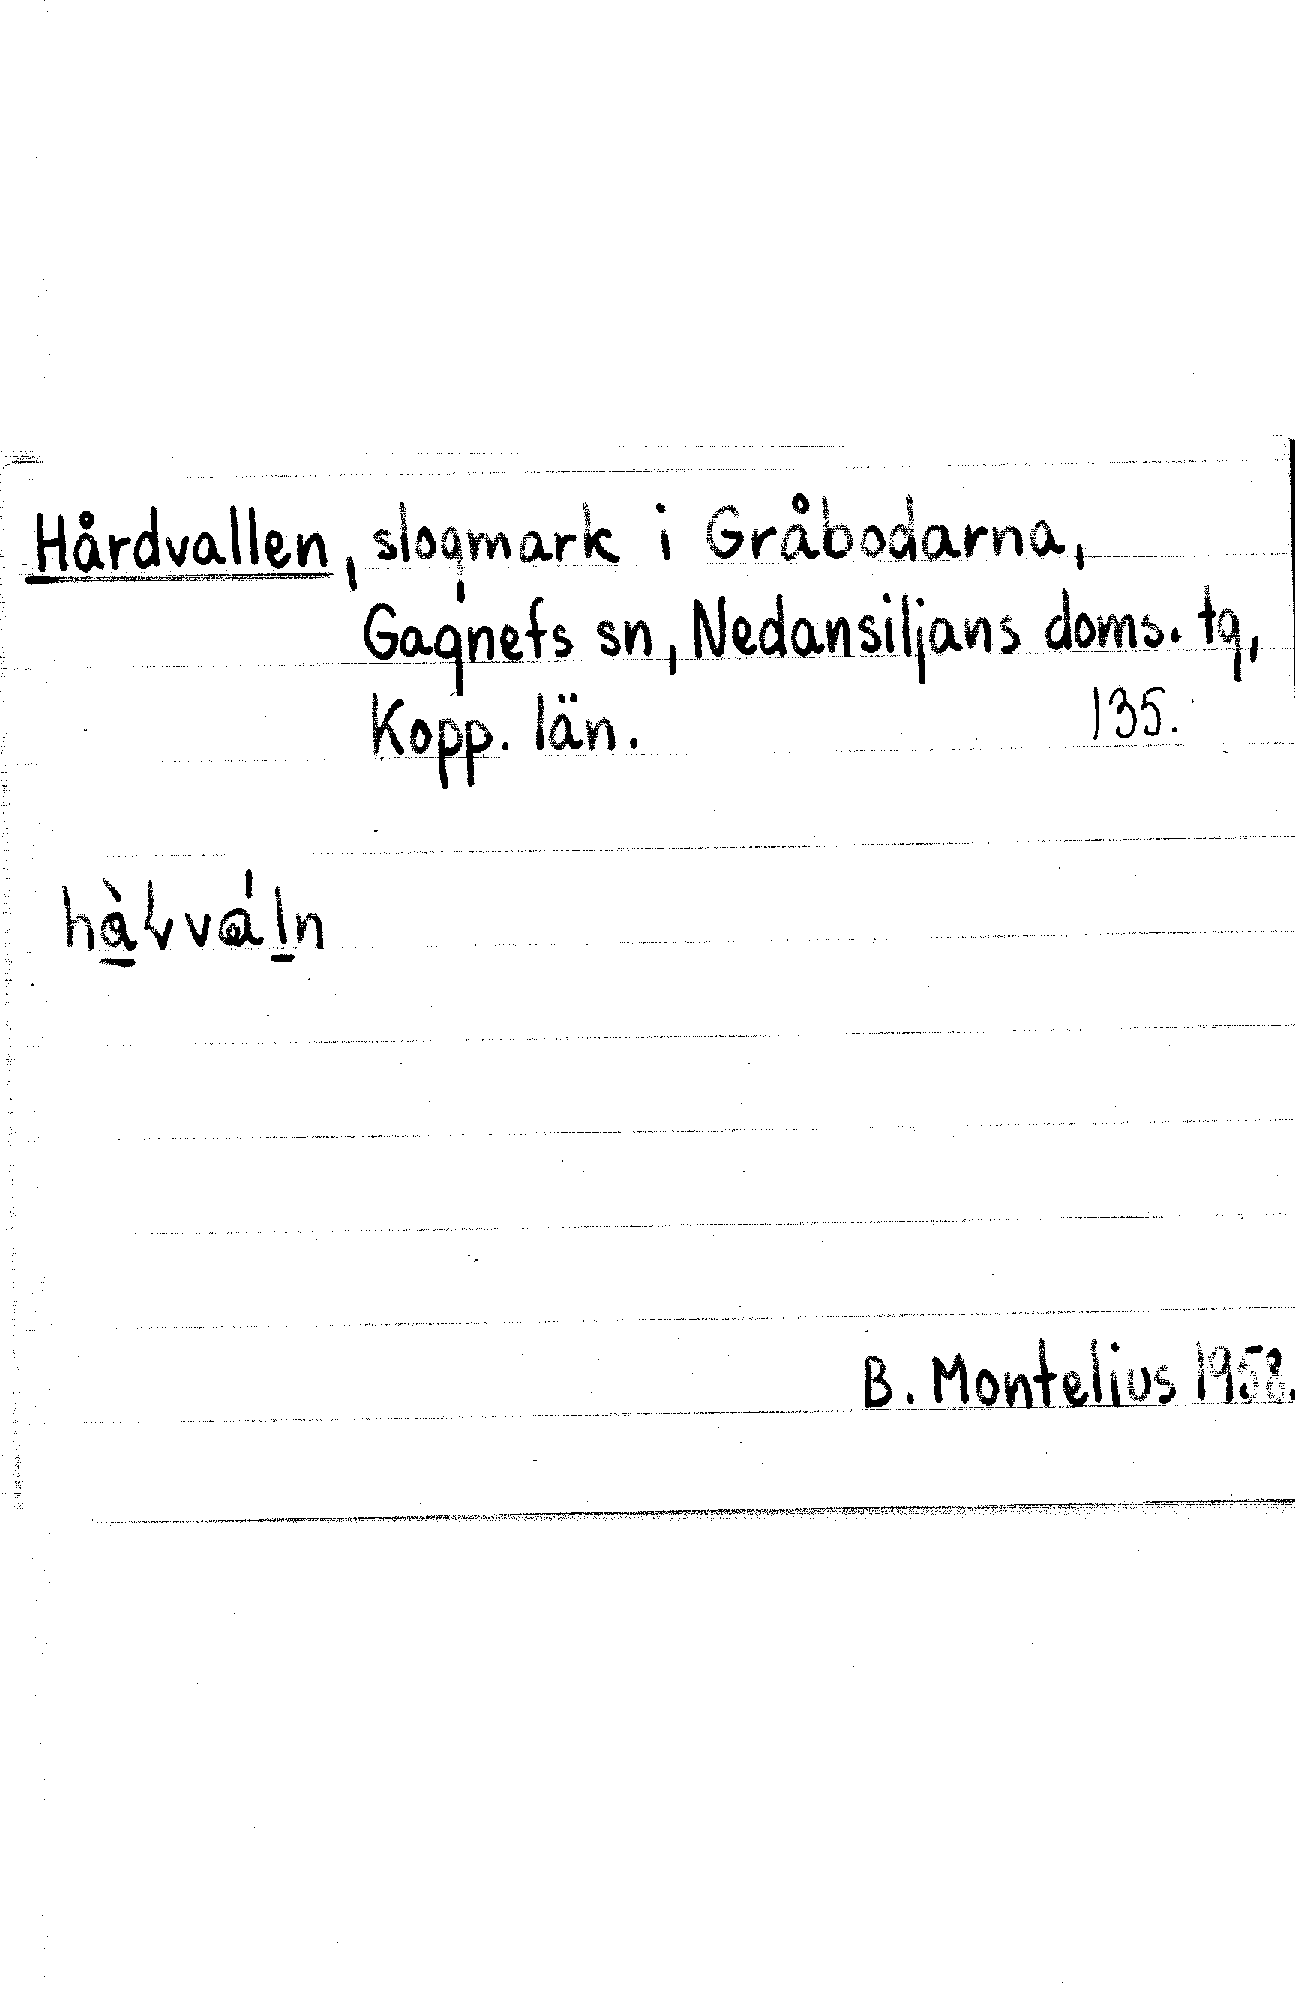 Hårdvallen, slogmark i Gråbodarna,
Gagnefs sn, Nedansiljans doms. tg,
Kopp. län. 135.
B. Montelius 1958.